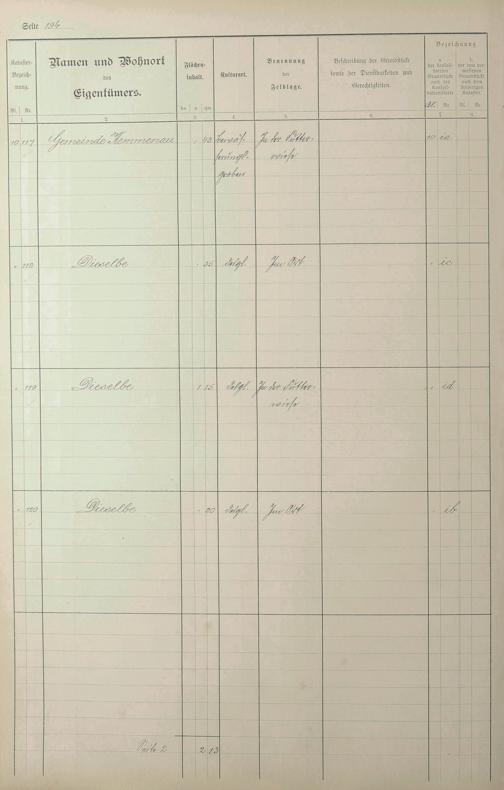 Seite 196
Kataster-
Bezeich-
nung.
Bl. Nr.
Namen und Wohnort
des
Eigentümers.
Flächen-
inhalt.
ha a qm
Kulturart.
Benennung
der
Feldlage.
Beschreibung der Grundstücke
sowie der Dienstbarkeiten und
Gerechtigkeiten.
Bezeichnung
a.
b.
Nr.
Bl. Nr.
1. 2. 3. 4. 5. 6. 7. 8.
10 117 Gemeinde Kemmenau 43 Bewäs- In der Hütter- 10 ia
serungs- wiese
graben
" 118 Dieselbe 35 desgl. Im Ort " ic
" 119 Dieselbe 1 15 desgl. In der Hütter- " id
wiese
" 120 Dieselbe 20 desgl. Im Ort " ib
Seite 2 13